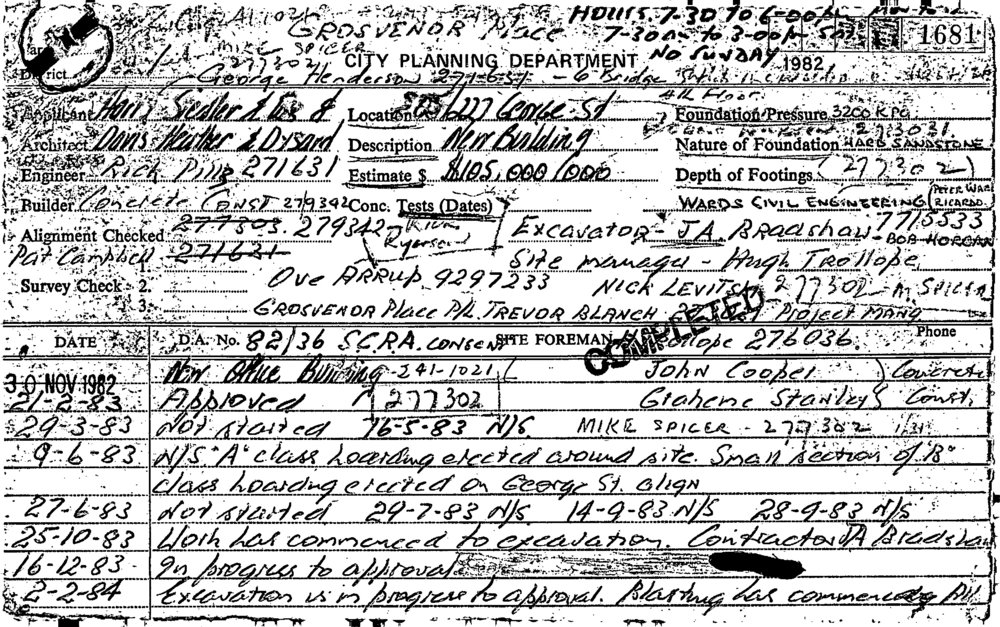 HOURS. 7-30 TO 6-00pm
GROSVENOR Place 7-30am to 3-00pm Sat.
MIKE SPICER NO SUNDAY 1681
277302 CITY PLANNING DEPARTMENT 1982
District George Henderson 271-631 - 6 Bridge St
4th Floor
Applicant Harry Seidler & Ass & Location 225/227 George St Foundation Pressure 3200 KPa
273031
Architect Description New Building Nature of Foundation HARD SANDSTONE
Engineer Rick 271631 Estimate $ $105,000,000 Depth of Footings (277302)
Builder Concrete CONST 279342 Conc. Tests (Dates) WARDS CIVIL ENGINEERING (PETER WARD RICARDO)
Alignment Checked 277303. 279342 Excavator - J.A. Bradshaw 7715533 - BOB MORGAN
Pat Campbell 271631 Site manager - Hugh Trollope
Survey Check 1.
2. Ove ARRUP. 9297233 NICK LEVITS 277302 - M. SPICER
3. GROSVENOR Place P/L. TREVOR BLANCH Project MANG
COMPLETED
DATE D.A. No. 82/36 S.C.R.A. CONSENT SITE FOREMAN 276036. Phone
30 NOV 1982 New Office Building - 241-1021 John Cooper ) Concrete
21-2-83 Approved 277302 Grahene Stanley } Const.
29-3-83 Not started 16-5-83 N/S. MIKE SPICER - 277302
9-6-83 N/S. "A" class hoarding erected around site. Small section of "B"
class hoarding erected on George St. align
27-6-83 Not started 29-7-83 N/S 14-9-83 N/S 28-9-83 N/S
25-10-83 Work has commenced to excavation. Contractor JA Bradshaw
16-12-83 In progress to approval
2-2-84 Excavation is in progress to approval. Blasting has commenced